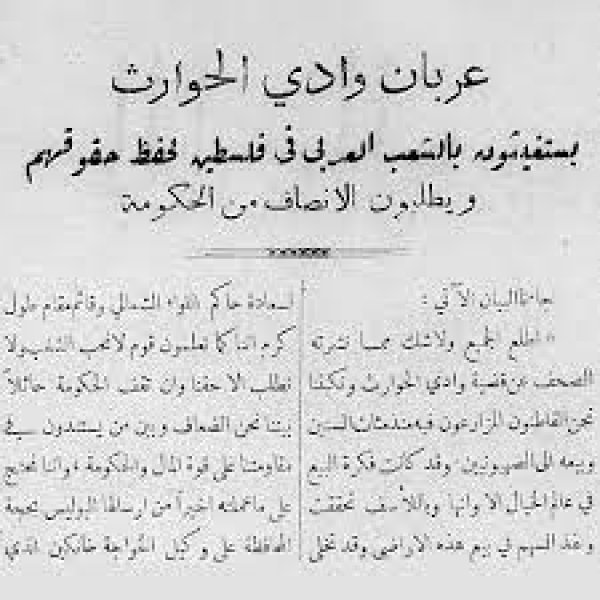 عربان وادي الحوارث
يستغيثون بالشعب العربي في فلسطين لحفظ حقوقهم
ويطلبون الانصاف من الحكومة
جاءنا البيان الآتي :
« اطلع الجميع ولاشك مما نشرته
الصحف عن قضية وادي الحوارث وتكفنا
نحن القاطنون المزارعون فيه منذ مئات السنين
وبيعه الى الصهيونيين وقد كانت فكرة البيع
في عالم الخيال الا وانها وياللأسف تحققت
ونفذ السهم في بيع هذه الاراضي وقد تخلى
لسعادة حاكم اللواء الشمالي وقائمقام طول
كرم اننا كما تعلمون قوم لانحب الشغب ولا
نطلب الا حقنا وان تقف الحكومة حائلاً
بيننا نحن الضعاف وبين من يستندون في
مقاومتنا على قوة المال والحكومة » واننا نحتج
على ماعملته اخيراً من ارسالها البوليس بحجة
المحافظة على وكيل الخواجة خانكين الذي